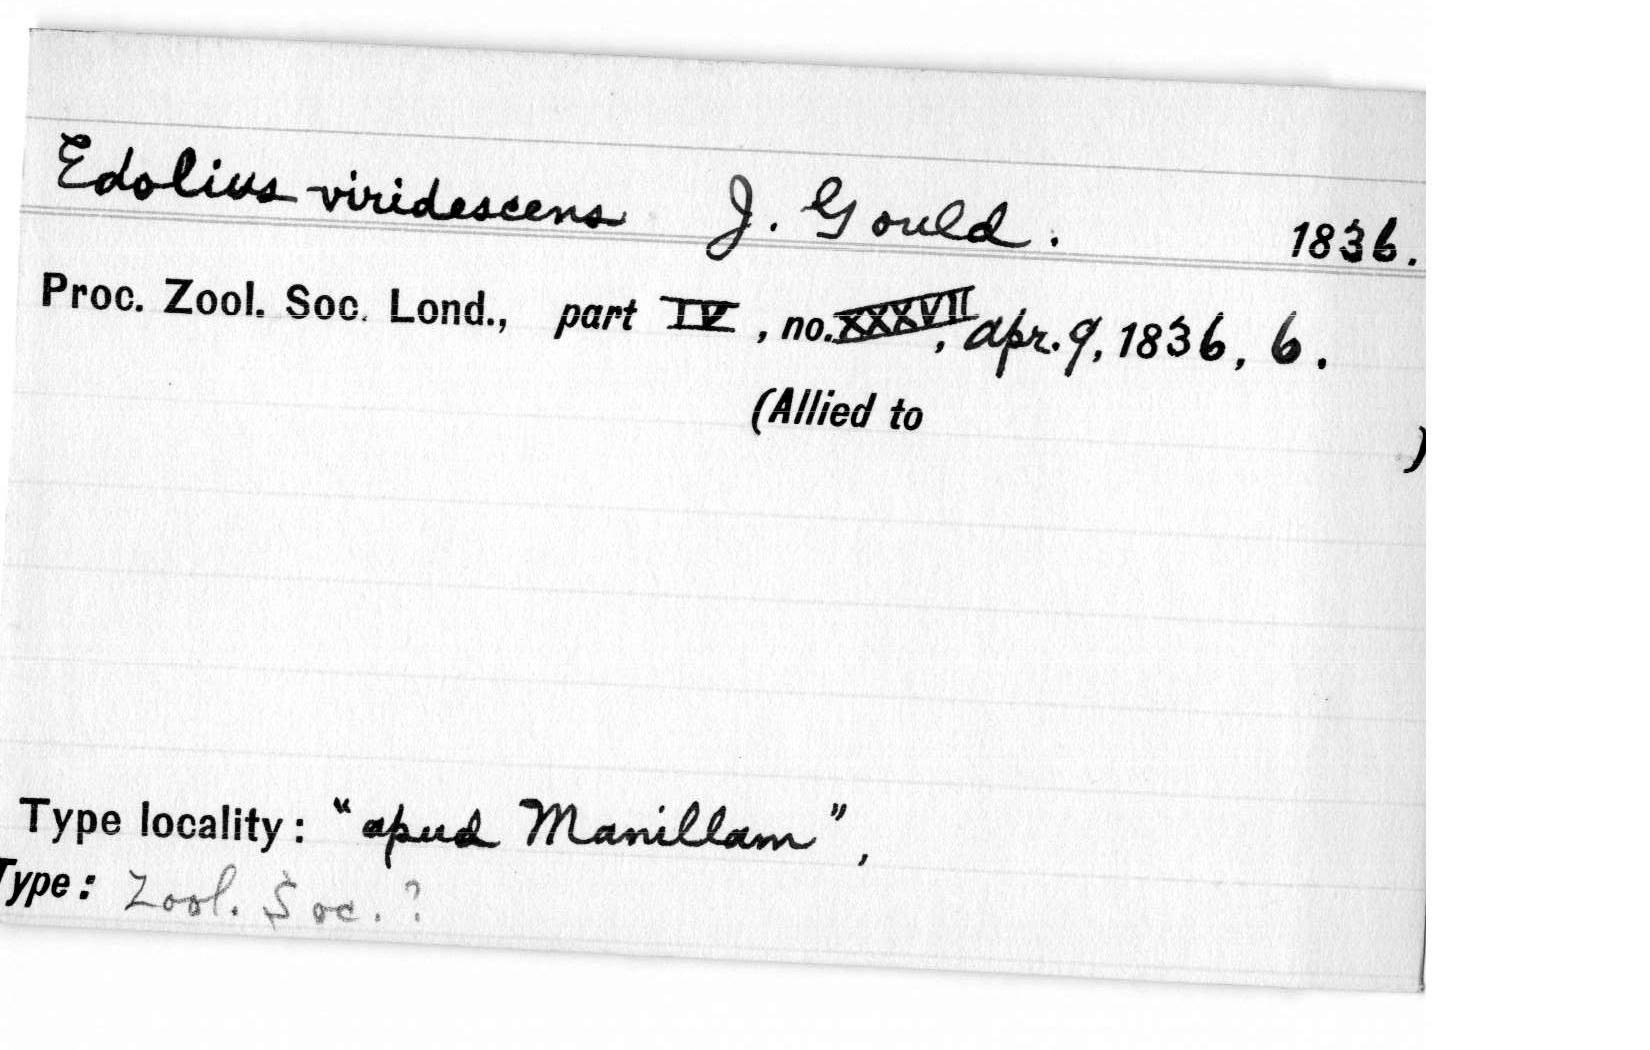 Edolius viridescens J. Gould. 1836.
Proc. Zool. Soc. Lond., part IV, no. XXXVII, Apr. 9, 1836, 6.
(Allied to )
Type locality: "apud Manillam",
Type: Zool. Soc. ?